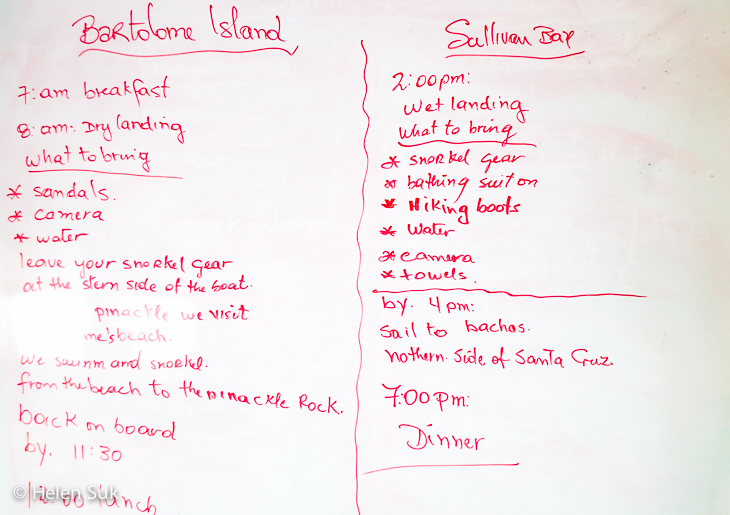 Bartolome Island
7: am breakfast
8: am: Dry landing
what to bring
* sandals.
* camera
* water
leave your snorkel gear
at the stern side of the boat.
pinackle we visit
me's beach.
we swimm and snorkel.
from the beach to the pinackle Rock.
back on board
by. 11:30
12:00 lunch
Sullivan Bay
2:00pm:
wet landing
what to bring
* snorkel gear
* bathing suit on
* Hiking boots
* water
* camera
* towels.
by. 4pm:
sail to bachas.
nothern. side of Santa Cruz
7:00pm:
Dinner
© Helen Suk